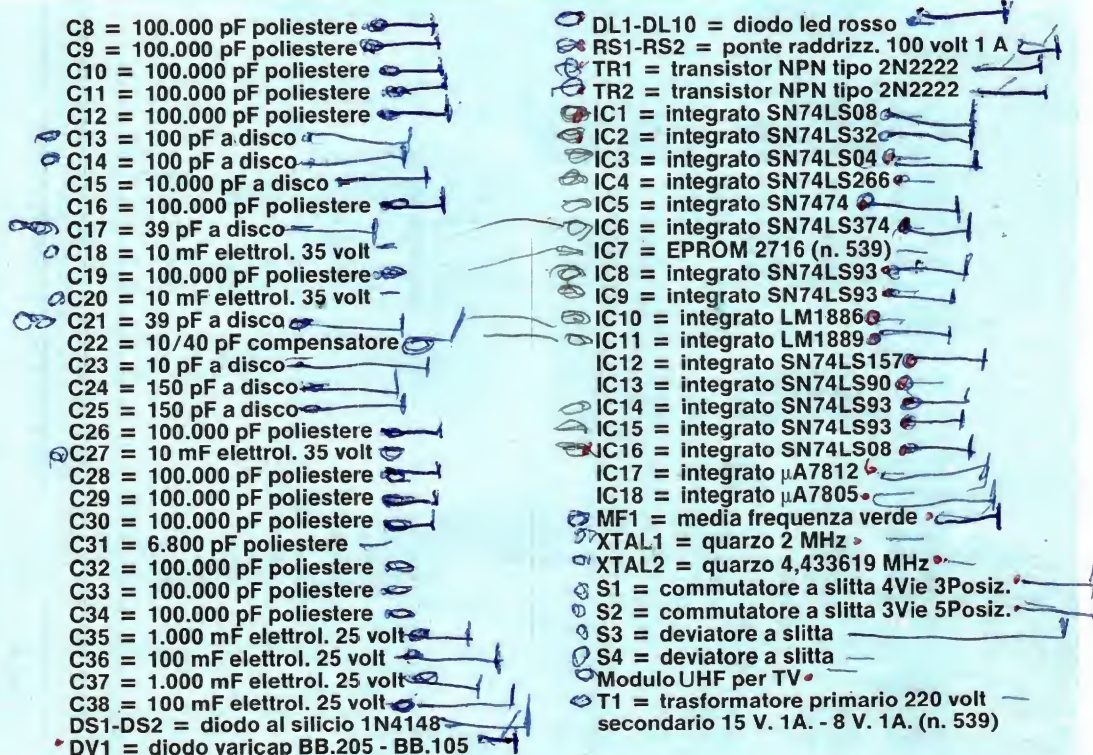 C8 = 100.000 pF poliestere
C9 = 100.000 pF poliestere
C10 = 100.000 pF poliestere
C11 = 100.000 pF poliestere
C12 = 100.000 pF poliestere
C13 = 100 pF a disco
C14 = 100 pF a disco
C15 = 10.000 pF a disco
C16 = 100.000 pF poliestere
C17 = 39 pF a disco
C18 = 10 mF elettrol. 35 volt
C19 = 100.000 pF poliestere
C20 = 10 mF elettrol. 35 volt
C21 = 39 pF a disco
C22 = 10/40 pF compensatore
C23 = 10 pF a disco
C24 = 150 pF a disco
C25 = 150 pF a disco
C26 = 100.000 pF poliestere
C27 = 10 mF elettrol. 35 volt
C28 = 100.000 pF poliestere
C29 = 100.000 pF poliestere
C30 = 100.000 pF poliestere
C31 = 6.800 pF poliestere
C32 = 100.000 pF poliestere
C33 = 100.000 pF poliestere
C34 = 100.000 pF poliestere
C35 = 1.000 mF elettrol. 25 volt
C36 = 100 mF elettrol. 25 volt
C37 = 1.000 mF elettrol. 25 volt
C38 = 100 mF elettrol. 25 volt
DS1-DS2 = diodo al silicio 1N4148
DV1 = diodo varicap BB.205 - BB.105
DL1-DL10 = diodo led rosso
RS1-RS2 = ponte raddrizz. 100 volt 1 A
TR1 = transistor NPN tipo 2N2222
TR2 = transistor NPN tipo 2N2222
IC1 = integrato SN74LS08
IC2 = integrato SN74LS32
IC3 = integrato SN74LS04
IC4 = integrato SN74LS266
IC5 = integrato SN7474
IC6 = integrato SN74LS374
IC7 = EPROM 2716 (n. 539)
IC8 = integrato SN74LS93
IC9 = integrato SN74LS93
IC10 = integrato LM1886
IC11 = integrato LM1889
IC12 = integrato SN74LS157
IC13 = integrato SN74LS90
IC14 = integrato SN74LS93
IC15 = integrato SN74LS93
IC16 = integrato SN74LS08
IC17 = integrato µA7812
IC18 = integrato µA7805
MF1 = media frequenza verde
XTAL1 = quarzo 2 MHz
XTAL2 = quarzo 4,433619 MHz
S1 = commutatore a slitta 4Vie 3Posiz.
S2 = commutatore a slitta 3Vie 5Posiz.
S3 = deviatore a slitta
S4 = deviatore a slitta
Modulo UHF per TV
T1 = trasformatore primario 220 volt
secondario 15 V. 1A. - 8 V. 1A. (n. 539)